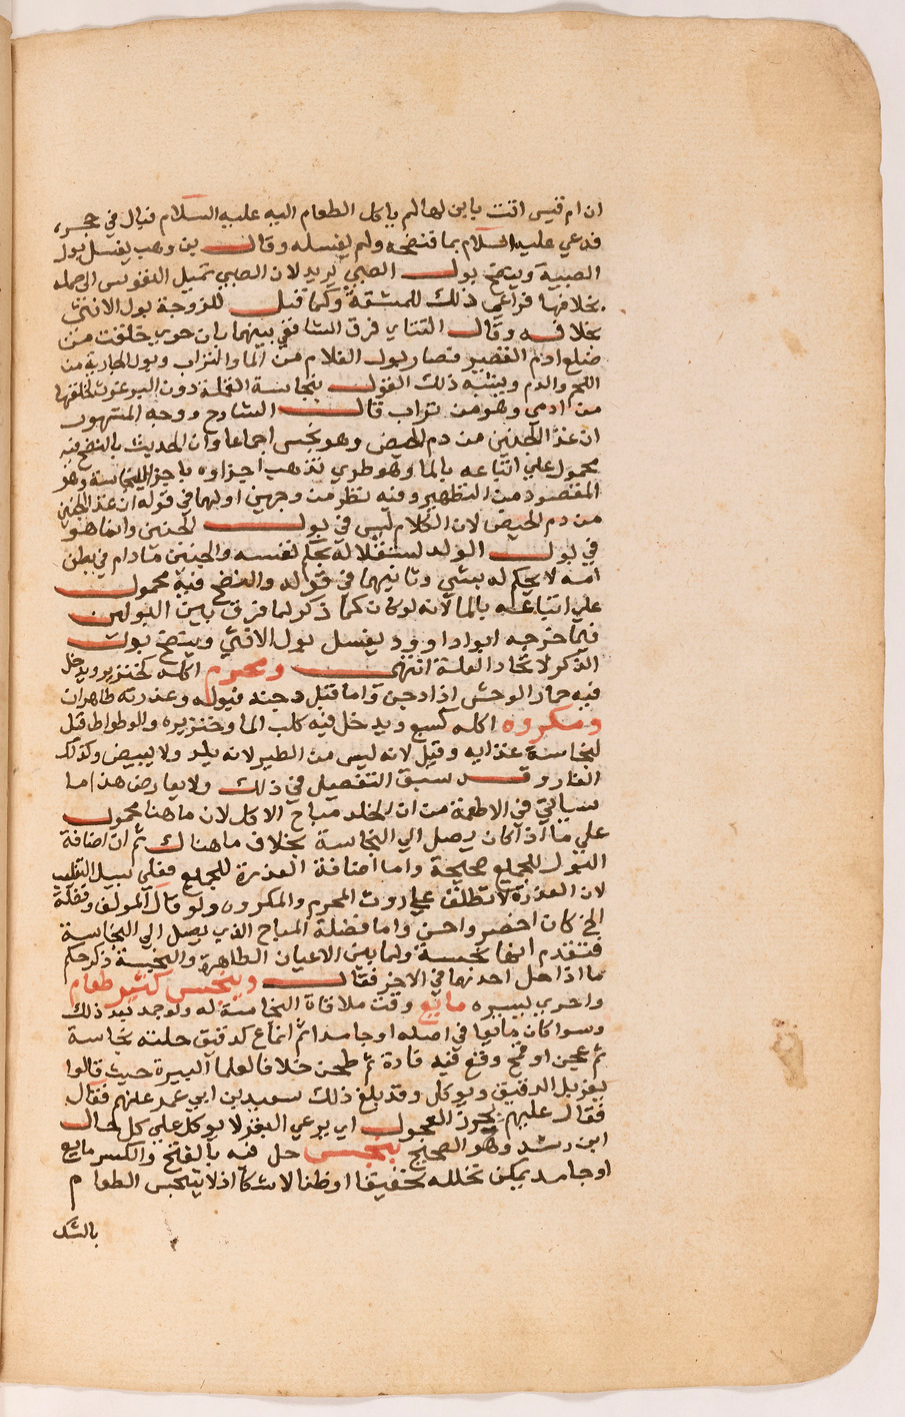 ان ام قيس اتت بابن لها لم ياكل الطعام اليه عليه السلام فبال في حجره
فدعي عليه السلام بما فنضحه ولم يغسله وقال بن وهب يغسل بول
الصبية وينضح بول الصبي يريد لان الصبي تميل النفوس الي حمله
بخلافها فراعي ذلك للمشقة وكما قبل للزوجة بول الانثي
بخلافه وقال التتاي فرق الشافعي بينهما بان حوي خلقت من
ضلع ادم القصير فصار بول الغلام من الما والتراب وبول الجارية من
اللحم والدم ويشبه ذلك القول بنجاسة القملة دون البرغوث لخلقها
من ادمي وهو من تراب قال الشارح ووجه المشهور
ان غذا الجنين من دم الحيض وهو نجس اجماعا وان الحديث بالنضح فيه
محمول علي اتباعه بالما وهو طري تذهب اجزاوه باجزا النجاسة وهو
المقصود من التطهير وفيه نظر من وجهين اولهما في قوله ان غذا الجنين
من دم الحيض لان الكلام ليس في بول الجنين وانما هو
في بول الولد لستقلاله بحكم نفسه والجنين مادام في بطن
امه لا يحكم له بشي وثانيهما في قوله والنضح فيه محمول
علي اتباعه بالما لانه لو كان كما ذكر لما فرق بين البولين
فيما خرجه ابو داوود يغسل بول الانثي وينضح بول
الذكر لاتحاد العلة انتهي ومحرم اكله كخنزير ويدخل
فيه حمار الوحش اذا دجن واما قبل دجنه فبوله وعذرته طاهران
ومكروه اكله كسبع ويدخل فيه كلب الما وخنزيره والوطواط قبل
لنجاسة غذايه وقيل لانه ليس من الطير لانه يلد ولا يبيض وكذلك
الفار وقد سبق التفصيل في ذلك ولا يعارض هذا ما
سياتي في الاطعمة من ان الخلد مباح الاكل لان ما هنا محمول
علي ما اذا كان يصل الي النجاسة بخلاف ما هناك ثم ان اضافة
البول للجميع صحيحة واما اضافة العذرة للجميع فعلي سبيل التغليب
لان العذرة لا تطلق علي روث المحرم والمكروه ولو قال المولف وفضلة
الخ كان اخصر واحسن واما فضلة المباح الذي يصل الي النجاسة
فتقدم انها نجسة ولما بين الاعيان الطاهرة والنجسة ذكر حكم
ما اذا حل احدنها في الاخر فقال وينجس كثير طعام
واحري يسيره مايع وقت ملاقاة النجاسة له ولو جمد بعد ذلك
وسوا كان مايعا في اصله او جامدا ثم انماع كدقيق حلته نجاسة
ثم عجن او قمح وقع فيه فارة ثم طحن خلافا لعلما البيرة حيث قالوا
يغربل الدقيق ويوكل وقد بلغ ذلك سعيد بن ابي عمر عنهم فقال
فقال عليهم بحرث العجول اي يرعي البقر لا يوكل علي كل حال
ابن رشد وهو الصحيح بنجس حل فيه بالفتح والكسر مايع
او جامد يمكن تخلله تحقيقا او ظنا لا شكا اذ لا ينجس الطعام
بالشك